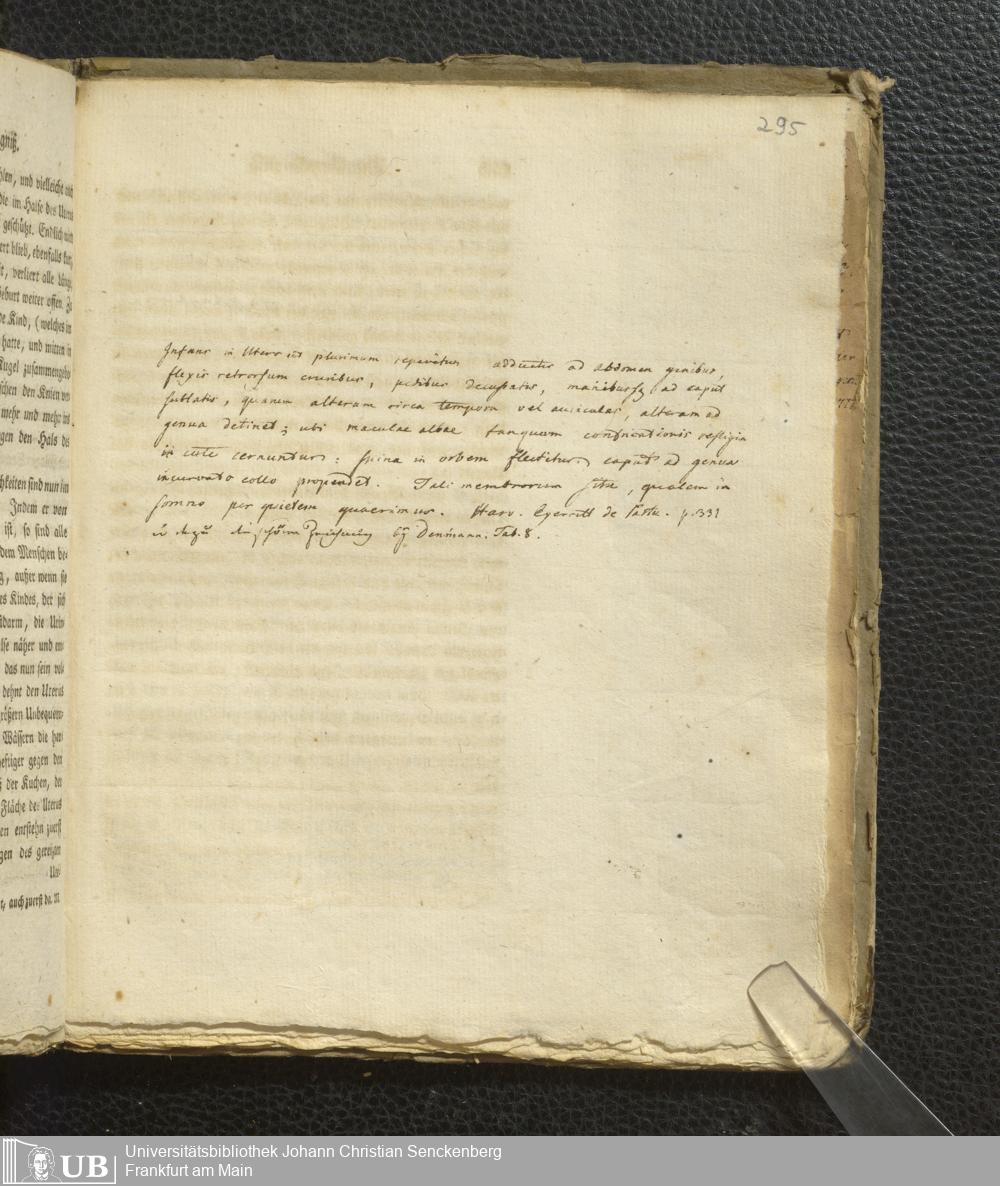 gniß.
hlen, und vielleicht mit
die im Halse des Uterus
geschützt. Endlich
ert blieb, ebenfalls
verliert alle
Geburt weiter offen.
de Kind, (welches in
hatte, und mitten in
Kugel zusammengebo
schen den Knien vor
mehr und mehr ins
gen den Hals des
hkeiten sind nun im
Indem er von
ist, so sind alle
dem Menschen be-
g, außer wenn sie
es Kindes, der sich
darm, die Urin
lse näher und en-
das nun sein vol-
dehnt den Uterus
rößern Unbequem-
Wässern die her-
eftiger gegen den
der Kuchen, der
Fläche des Uterus
en entstehn zuerst
gen des gereizten
Ute-
t, auch zuerst da. M
295
Infans in Utero ut plurimum reperitur adductis ad abdomen genibus,
flexis retrorsum cruribus, pedibus decussatis, manibusq ad caput
sublatis, quarum alteram circa tempora vel auriculas, alteram ad
genua detinet; ubi maculae albae tanquam confricationis vestigia
in cute cernuntur: spina in orbem flectitur, caput ad genua
incurvato collo propendet. Tali membrorum situ, qualem in
somno per quietem quaerimus. Harv. Exercit de Partu. p. 331
Denmann. Tab. 8.
UB
Universitätsbibliothek Johann Christian Senckenberg
Frankfurt am Main